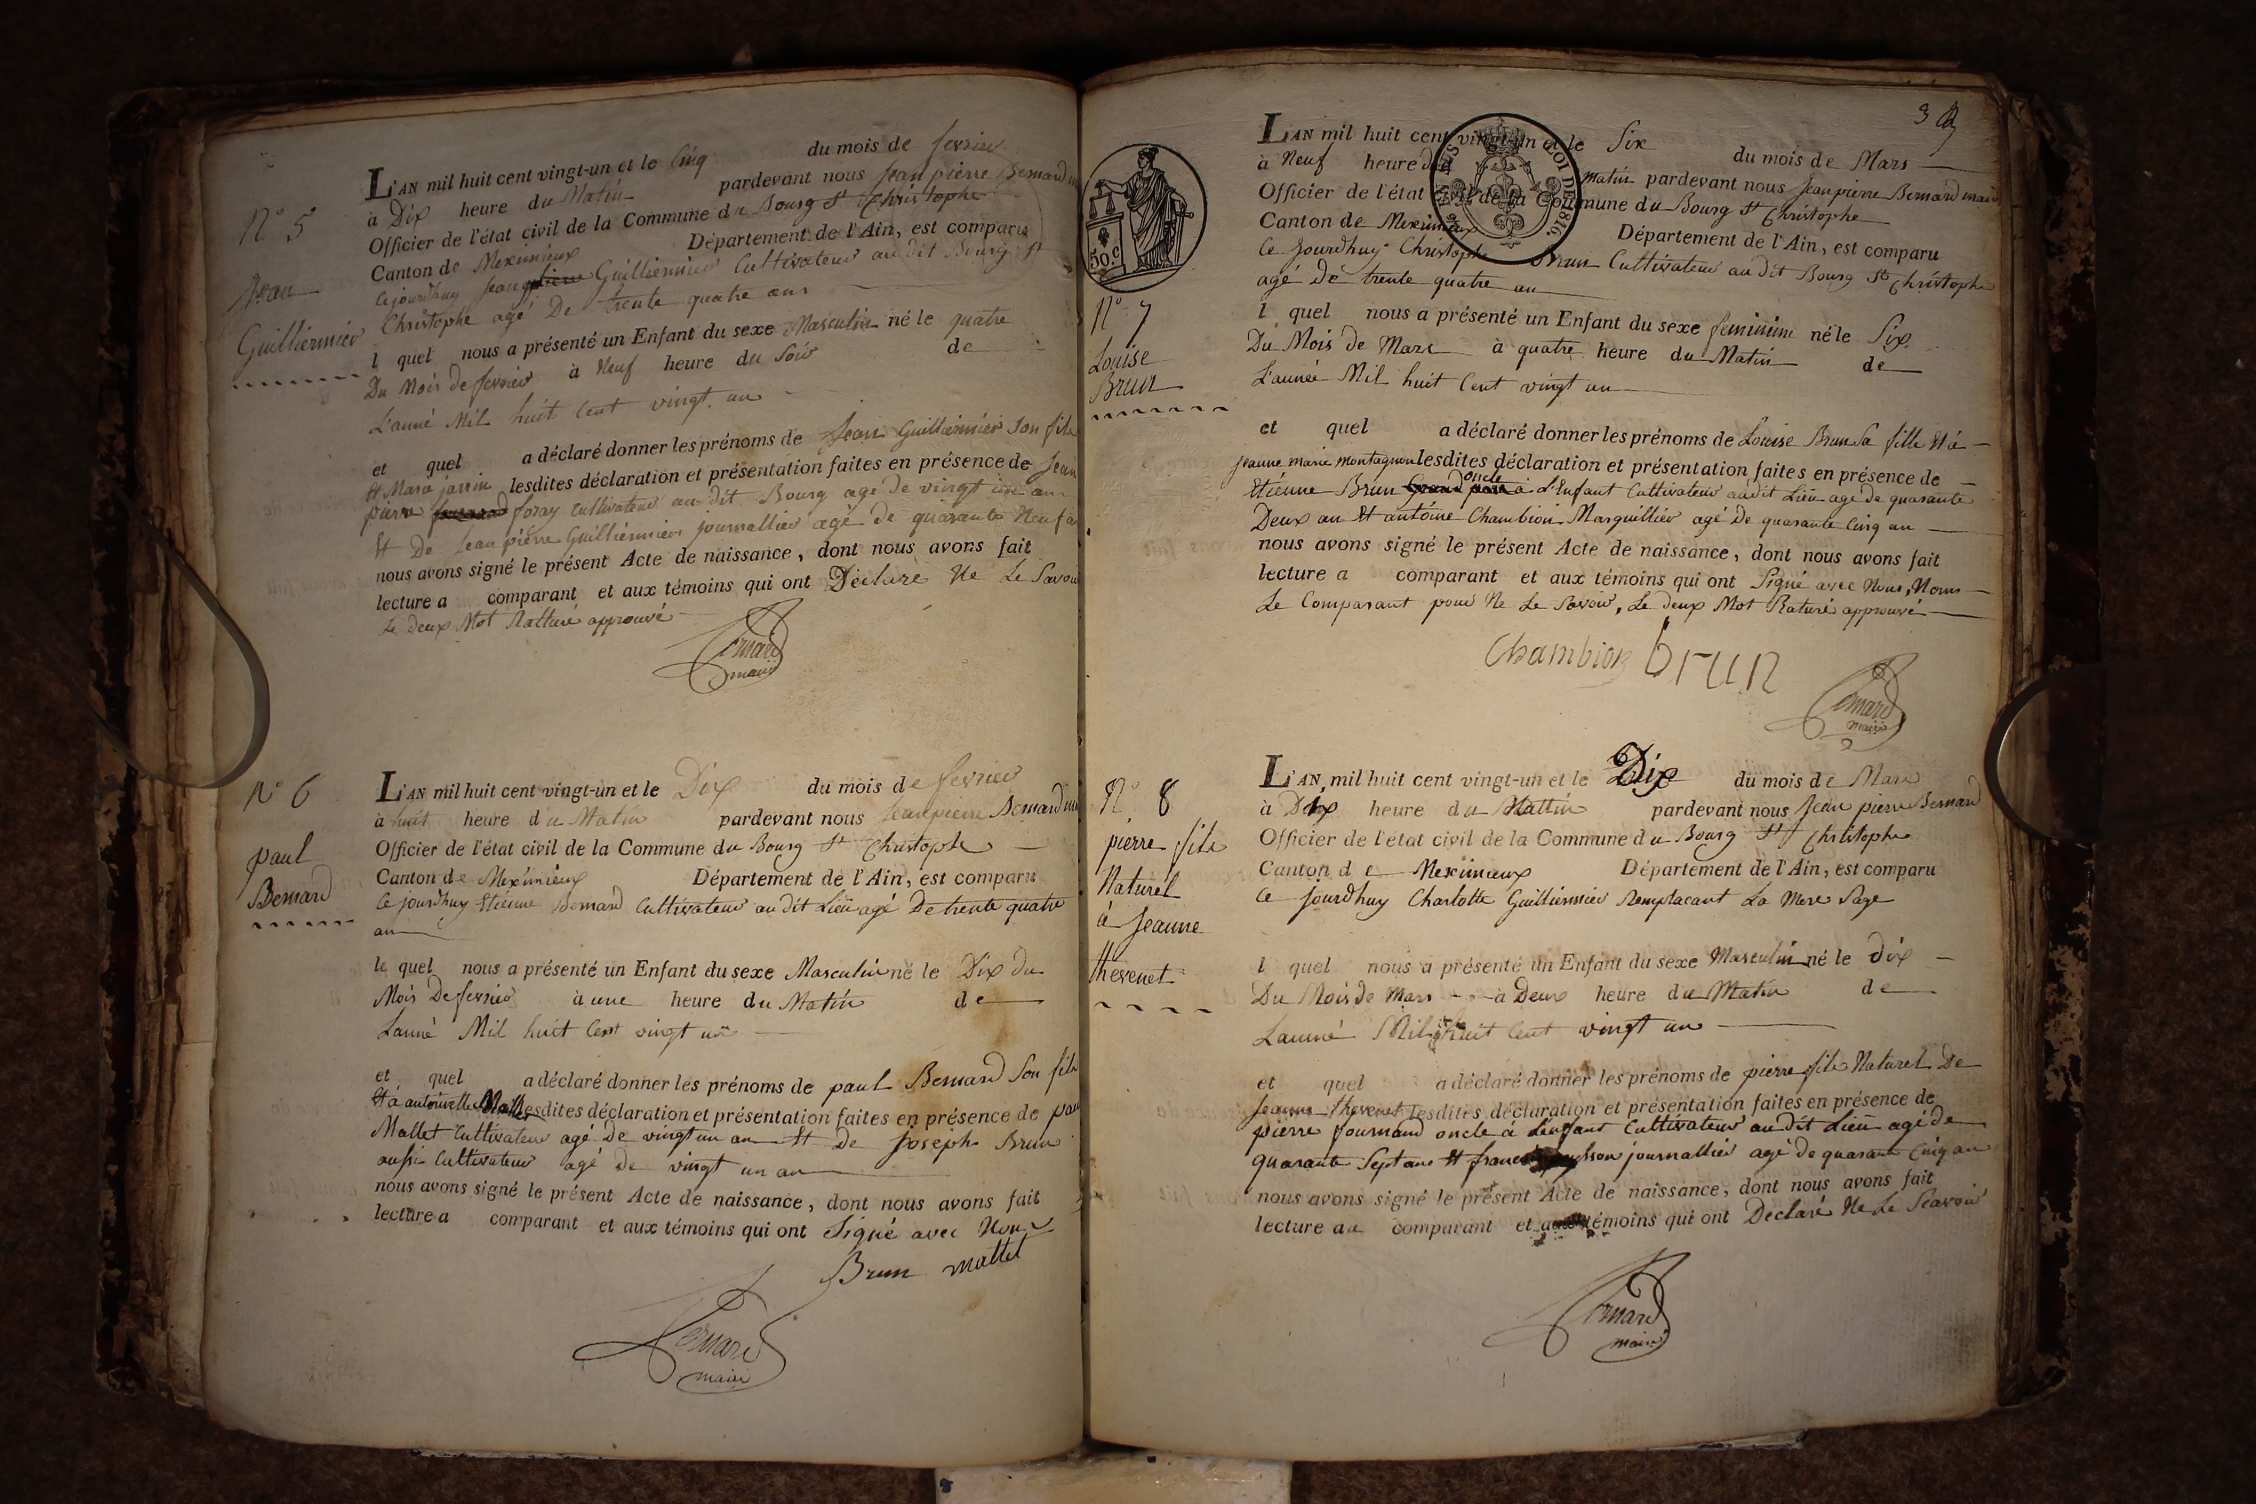 N.o 5
Jean
Guilliermier
L'AN mil huit cent vingt-un et le Cinq du mois de fevrier
à Dix heure du Matin pardevant nous Jean pierre Bernard
Officier de l'état civil de la Commune du Bourg St Christophe
Canton de Meximieux Département de l'Ain, est comparu
Cejourdhuy Jean Guilliermier Cultivateur au dit Bourg St
Christophe agé De trente quatre ans
l quel nous a présenté un Enfant du sexe Masculin né le quatre
Du Mois de fevrier à Neuf heure du Soir de
L'anné Mil huit Cent vingt un
et quel a déclaré donner les prénoms de Jean Guilliermier Son fils
lesdites déclaration et présentation faites en présence de Jean
pierre foray Cultivateur au dit Bourg agé de vingt un an
Et De Jean pierre Guilliermier journallier agé de quarante Neuf
nous avons signé le présent Acte de naissance, dont nous avons fait
lecture a comparant et aux témoins qui ont Déclaré Ne Le Savoir
Le Deux Mot Ratturé approuvé
Bernard
maire
N.o 6
paul
Bernard
L'AN mil huit cent vingt-un et le Dix du mois de fevrier
à huit heure du Matin pardevant nous Jean pierre Bernard
Officier de l'état civil de la Commune du Bourg St Christophe
Canton de Meximieux Département de l'Ain, est comparu
Ce jourdhuy Etienne Bernard Cultivateur au dit Lieu agé De trente quatre
an
le quel nous a présenté un Enfant du sexe Masculin né le Dix du
Mois De fevrier à une heure du Matin de
Lanné Mil huit Cent vingt un
et quel a déclaré donner les prénoms de paul Bernard Son fils
Et à lesdites déclaration et présentation faites en présence de
Mallet Cultivateur agé de vingt un an Et de Joseph Brun
aussi Cultivateur agé de vingt un an
nous avons signé le présent Acte de naissance, dont nous avons fait
lecture a comparant et aux témoins qui ont Signé avec Nous
Brun mallet
Bernard
maire
3
50.c
N.o 7
Louise
Brun
L'AN mil huit cent vingt-un et le Six du mois de Mars
à Neuf heure du matin pardevant nous Jean pierre Bernard maire
Officier de l'état civil de la Commune du Bourg St Christophe
Canton de Meximieux Département de l'Ain, est comparu
Ce Jourdhuy Christophe Brun Cultivateur au dit Bourg St Christophe
agé De trente quatre an
l quel nous a présenté un Enfant du sexe feminim né le Six
Du Mois de Mars à quatre heure du Matin de
L'année Mil huit Cent vingt un
et quel a déclaré donner les prénoms de Louise Brun Sa fille Et à
Jeanne marie montagnon lesdites déclaration et présentation faites en présence de
Etienne Brun oncle à L'Enfant Cultivateur audit Lieu agé de quarante
Deux an Et antoine Chambion Marguillier agé De quarante Cinq an
nous avons signé le présent Acte de naissance, dont nous avons fait
lecture a comparant et aux témoins qui ont Signé avec Nous, Nom
Le Comparant pour Ne Le Savoir, Le deux Mot Raturé approuvé
Chambion brun
Bernard
maire
N.o 8
pierre fils
Naturel
à Jeanne
thevenet
L'AN mil huit cent vingt-un et le Dix du mois de Mars
à Dix heure du Mattin pardevant nous Jean pierre Bernard
Officier de l'état civil de la Commune du Bourg St Christophe
Canton de Meximieux Département de l'Ain, est comparu
Ce Jourdhuy Charlotte Guilliermier Remplacant La Mere Sage
l quel nous a présenté un Enfant du sexe Masculin né le dix
Du Mois de Mars à Deux heure du Matin de
Lanné Mil huit Cent vingt un
et quel a déclaré donner les prénoms de pierre fils Naturel De
Jeanne thevenet lesdites déclaration et présentation faites en présence de
pierre fournand oncle à Lenfant Cultivateur au dit Lieu agé de
quarante Sept ans Et journallier agé de quarante Cinq an
nous avons signé le présent Acte de naissance, dont nous avons fait
lecture au comparant et aux témoins qui ont Declaré Ne Le Scavoir
Bernard
maire